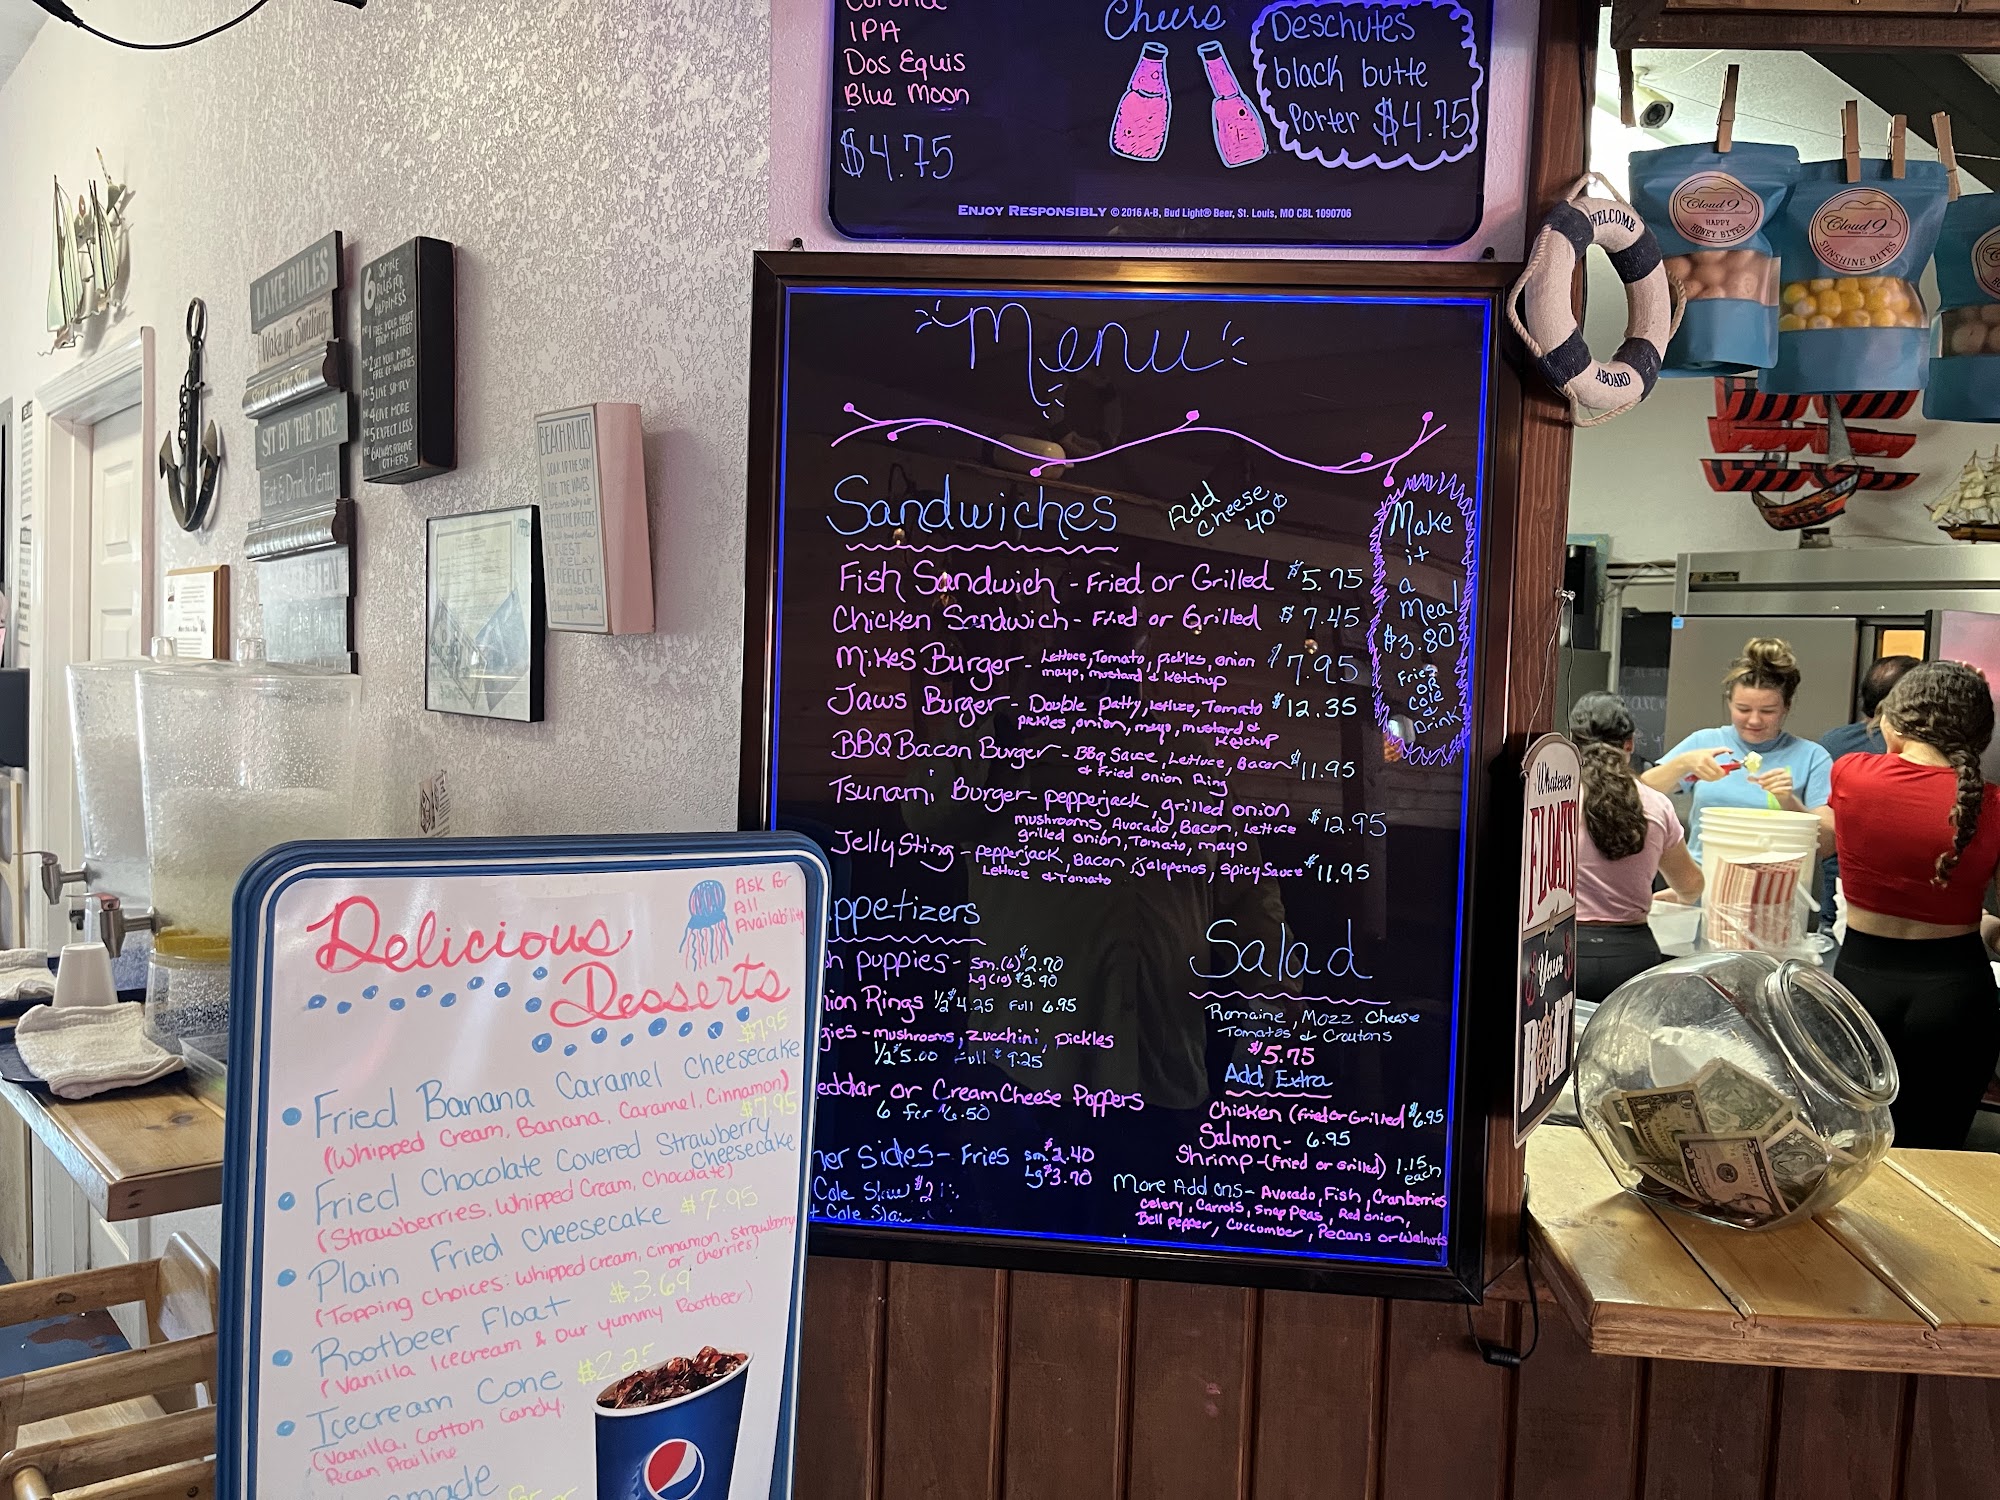 IPA
Dos Equis
Blue Moon
$4.75
Cheers
Deschutes
black butte
Porter $4.75
ENJOY RESPONSIBLY © 2016 A-B, Bud Light® Beer, St. Louis, MO CBL 1090706
Menu
Sandwiches
Add
Cheese
40¢
Fish Sandwich - Fried or Grilled $5.75
Chicken Sandwich - Fried or Grilled $7.45
Mikes Burger - Lettuce, Tomato, pickles, onion $7.95
mayo, mustard & Ketchup
Jaws Burger - Double patty, lettuce, Tomato $12.35
pickles, onion, mayo, mustard &
Ketchup
BBQ Bacon Burger - BBq Sauce, Lettuce, Bacon $11.95
& Fried onion Ring
Tsunami Burger - pepperjack, grilled onion
mushrooms, Avocado, Bacon, Lettuce $12.95
grilled onion, Tomato, mayo
Jelly Sting - pepperjack, Bacon, jalapenos, spicy Sauce $11.95
Lettuce & Tomato
Make
it
a
Meal
$3.80
Fries
OR
Cole
&
Drink
ppetizers
h puppies - Sm.(6) $2.70
Lg (10) $3.90
nion Rings 1/2 $4.25 Full 6.95
gies - mushrooms, zucchini, pickles
1/2 $5.00 Full $9.25
eddar or Cream Cheese Poppers
6 for $6.50
her Sides - Fries Sm. $2.40
Lg $3.70
Cole Slaw
Cole Slaw
Salad
Romaine, Mozz. Cheese
Tomatoes & Croutons
$5.75
Add Extra
Chicken (Fried or Grilled $6.95
Salmon - 6.95
Shrimp - (Fried or Grilled) 1.15
each
More Add ons - Avocado, Fish, Cranberries
celery, Carrots, Snap Peas, Red onion,
Bell pepper, Cuccumber, Pecans or Walnuts
Delicious
Desserts
Ask for
All
Availability
$7.95
Fried Banana Caramel Cheesecake
(Whipped Cream, Banana, Caramel, Cinnamon)
$7.95
Fried Chocolate Covered Strawberry
Cheesecake
(Strawberries, Whipped Cream, Chocolate)
Plain Fried Cheesecake $7.95
(Topping Choices: Whipped Cream, Cinnamon, Strawberry
or cherries)
Rootbeer Float $3.69
(Vanilla Icecream & our yummy Rootbeer)
Icecream Cone $2.25
(Vanilla, Cotton Candy,
Pecan Prailine
made
LAKE RULES
Wake up Smiling
SIT BY THE FIRE
Eat & Drink Plenty
6 SIMPLE
RULES FOR
HAPPINESS
NO.1 FREE YOUR HEART
FROM HATRED
NO.2 LET YOUR MIND
FREE OF WORRIES
NO.3 LIVE SIMPLY
NO.4 GIVE MORE
NO.5 EXPECT LESS
NO.6 ALWAYS PRAY FOR
OTHERS
BEACH RULES
SOAK UP THE SUN
RIDE THE WAVES
FEEL THE BREEZE
REST
RELAX
REFLECT
WELCOME
ABOARD
Cloud 9
HAPPY
HONEY BITES
Cloud 9
SUNSHINE BITES
Whatever
FLOATS
Your
BOAT